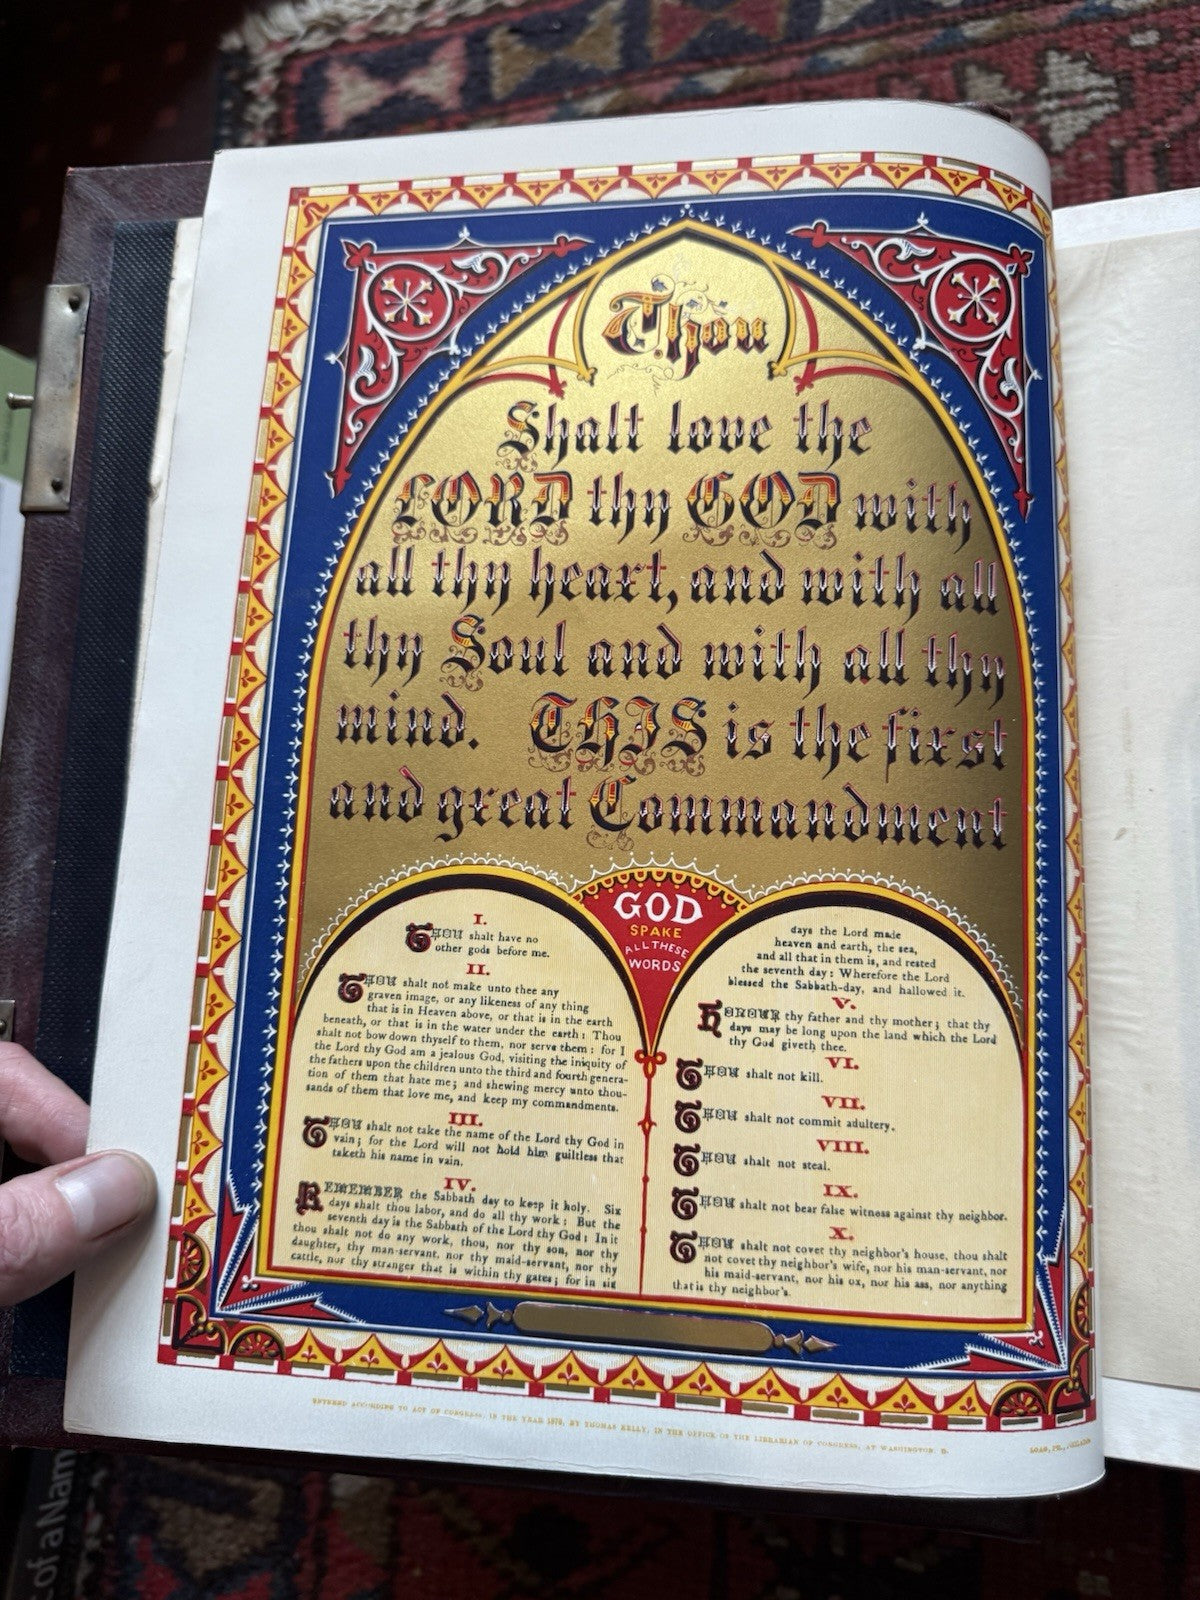 Thou
Shalt love the
LORD thy GOD with
all thy heart, and with all
thy Soul and with all thy
mind. THIS is the first
and great Commandment
GOD
SPAKE
ALL THESE
WORDS
I.
THOU shalt have no
other gods before me.
II.
THOU shalt not make unto thee any
graven image, or any likeness of any thing
that is in Heaven above, or that is in the earth
beneath, or that is in the water under the earth: Thou
shalt not bow down thyself to them, nor serve them: for I
the Lord thy God am a jealous God, visiting the iniquity of
the fathers upon the children unto the third and fourth genera-
tion of them that hate me; and shewing mercy unto thou-
sands of them that love me, and keep my commandments.
III.
THOU shalt not take the name of the Lord thy God in
vain; for the Lord will not hold him guiltless that
taketh his name in vain.
IV.
REMEMBER the Sabbath day to keep it holy. Six
days shalt thou labor, and do all thy work: But the
seventh day is the Sabbath of the Lord thy God: In it
thou shalt not do any work, thou, nor thy son, nor thy
daughter, thy man-servant, nor thy maid-servant, nor thy
cattle, nor thy stranger that is within thy gates; for in six
days the Lord made
heaven and earth, the sea,
and all that in them is, and rested
the seventh day: Wherefore the Lord
blessed the Sabbath-day, and hallowed it.
V.
HONOUR thy father and thy mother; that thy
days may be long upon the land which the Lord
thy God giveth thee.
VI.
THOU shalt not kill.
VII.
THOU shalt not commit adultery.
VIII.
THOU shalt not steal.
IX.
THOU shalt not bear false witness against thy neighbor.
X.
THOU shalt not covet thy neighbor's house, thou shalt
not covet thy neighbor's wife, nor his man-servant, nor
his maid-servant, nor his ox, nor his ass, nor anything
that is thy neighbor's.
ENTERED ACCORDING TO ACT OF CONGRESS, IN THE YEAR 1876, BY THOMAS KELLY, IN THE OFFICE OF THE LIBRARIAN OF CONGRESS, AT WASHINGTON D.
of a Nam